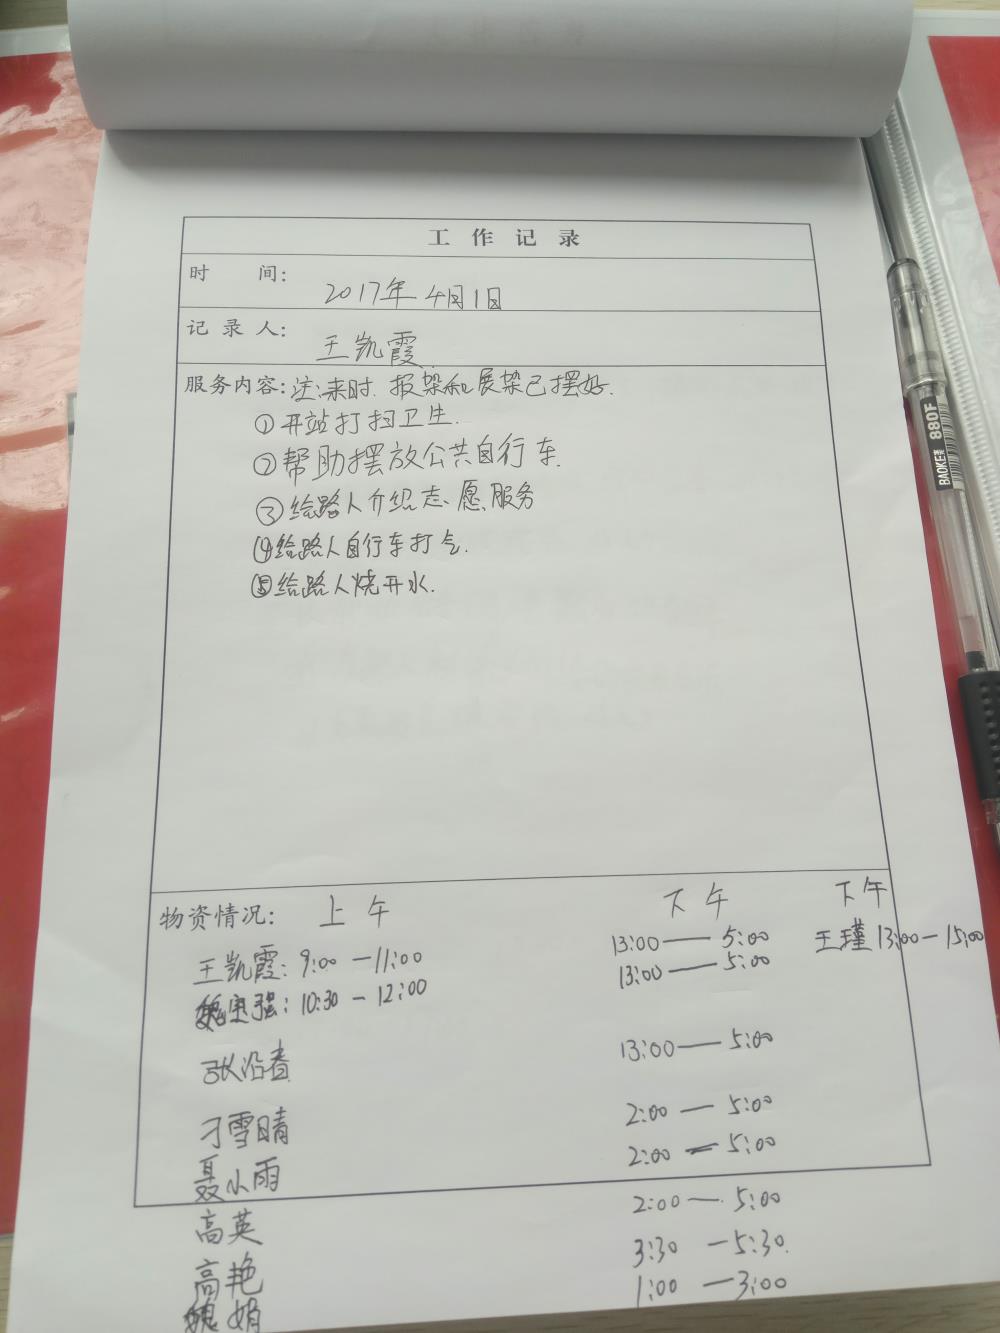 工作记录
时 间: 2017年4月1日
记录人: 王凯霞
服务内容: 注:来时.报架和展架已摆好.
①开站打扫卫生.
②帮助摆放公共自行车.
③给路人介绍志愿服务
④给路人自行车打气.
⑤给路人烧开水.
物资情况: 上午 下午 下午
王凯霞: 9:00 — 11:00 13:00 — 5:00 王瑾 13:00 — 15:00
强: 10:30 — 12:00 13:00 — 5:00
张沿春 13:00 — 5:00
刁雪晴 2:00 — 5:00
聂小雨 2:00 — 5:00
高英 2:00 — 5:00
高艳 3:30 — 5:30.
魏娟 1:00 — 3:00
BAOKE宝克 880F